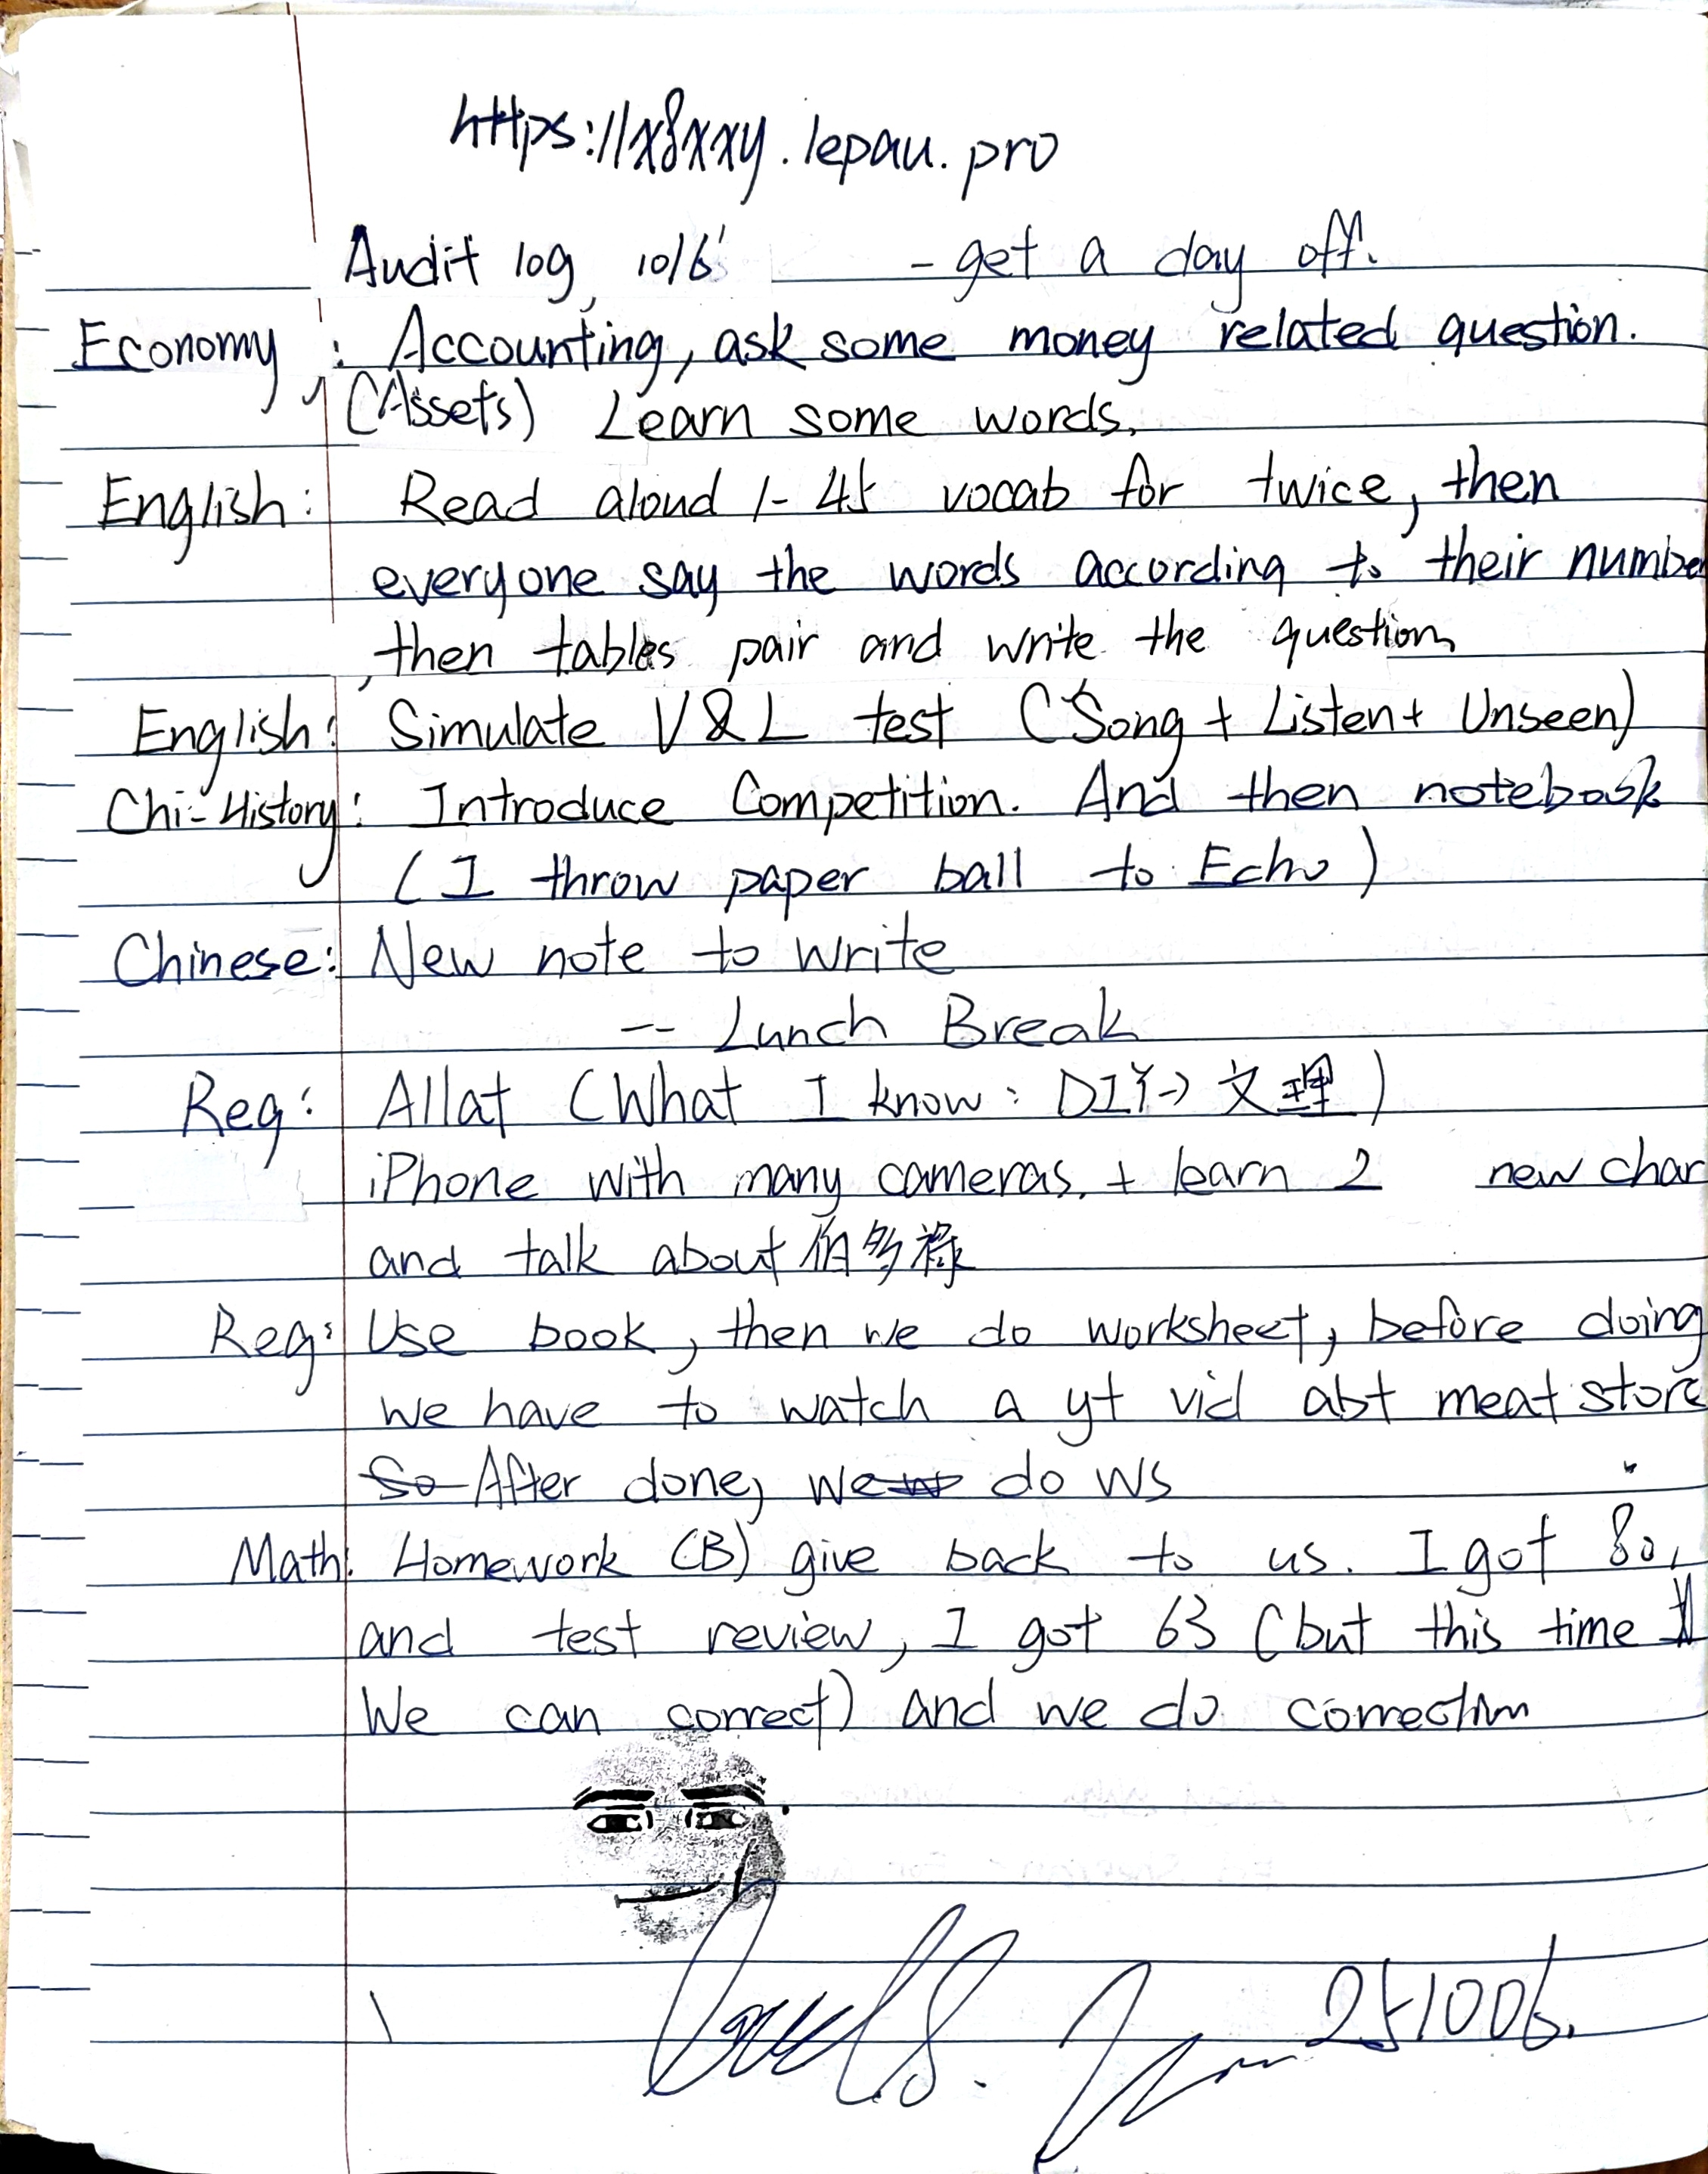 https://x8xxy.lepau.pro
Audit log, 10/6 - get a day off.
Economy: Accounting, ask some money related question.
(Assets) Learn some words.
English: Read aloud 1-45 vocab for twice, then
everyone say the words according to their numbe
, then tables pair and write the question
English: Simulate V&L test (Song + Listen + Unseen)
Chi-History: Introduce Competition. And then notebook
(I throw paper ball to Echo)
Chinese: New note to write
-- Lunch Break
Reg: Allat (What I know: DIY-> 文理)
iPhone with many cameras. + learn 2 new char
and talk about 伯多祿
Reg: Use book, then we do worksheet, before doing
we have to watch a yt vid abt meat store
So After done, we do ws
Math: Homework (B) give back to us. I got 80,
and test review, I got 63 (but this time
We can correct) and we do correction
251006.